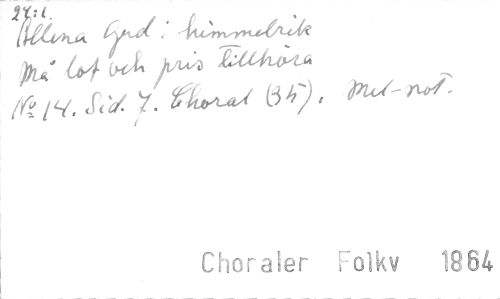 24:1.
Allena Gud i himmelrik
Må lof och pris tillhöra
No 14. Sid. 7. Choral (35). Mel-not.
Choraler Folkv 1864